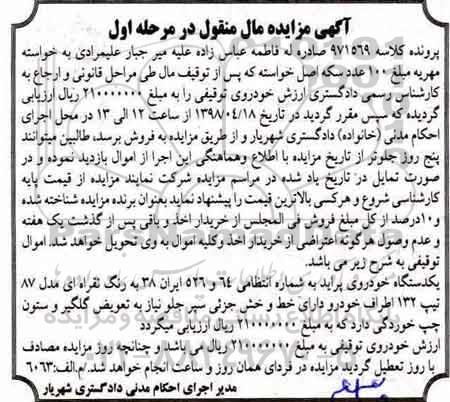 آگهی مزایده مال منقول در مرحله اول
پرونده کلاسه ۹۷۱۵۶۹ صادره له فاطمه عباس زاده علیه میر جبار علیمرادی به خواسته
مهریه مبلغ ۱۰۰ عدد سکه اصل خواسته که پس از توقیف مال طی مراحل قانونی و ارجاع به
کارشناس رسمی دادگستری ارزش خودروی توقیفی را به مبلغ ۲۱۰۰۰۰۰۰۰ ریال ارزیابی
گردیده که سپس مقرر گردید در تاریخ ۱۳۹۸/۰۴/۱۸ از ساعت ۱۲ الی ۱۳ در محل اجرای
احکام مدنی (خانواده) دادگستری شهریار و از طریق مزایده به فروش برسد، طالبین میتوانند
پنج روز جلوتر از تاریخ مزایده با اطلاع وهماهنگی این اجرا از اموال بازدید نموده و در
صورت تمایل در تاریخ یاد شده در مراسم مزایده شرکت نمایند مزایده از قیمت پایه
کارشناسی شروع و هرکسی بالاترین قیمت را پیشنهاد نماید بعنوان برنده مزایده شناخته شده
و۱۰درصد از کل مبلغ فروش فی المجلس از خریدار اخذ و باقی پس از گذشت یک هفته
و عدم وصول هرگونه اعتراضی از خریدار اخذ وکلیه اموال به وی تحویل خواهد شد. اموال
توقیفی به شرح زیر می باشد.
یکدستگاه خودروی پراید به شماره انتظامی ٦٤ و ٥٢٦ ایران ٣٨ به رنگ نقراه ای مدل ٨٧
تیپ ۱۳۲ اطراف خودرو دارای خط و خش جزئی سپر جلو نیاز به تعویض گلگیر و ستون
چپ خوردگی دارد که به مبلغ ۲۱۰۰۰۰۰۰۰ ریال ارزیابی میگردد
ارزش خودروی توقیفی به مبلغ ۲۱۰۰۰۰۰۰۰ ریال می باشد. و چنانچه روز مزایده مصادف
با روز تعطیل گردید مزایده در فردای همان روز و ساعت انجام خواهد شد./م.الف:٦٠٦٣
مدیر اجرای احکام مدنی دادگستری شهریار